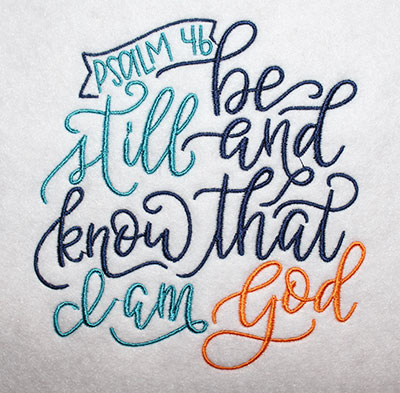 PSALM 46
be
still and
know that
I am God